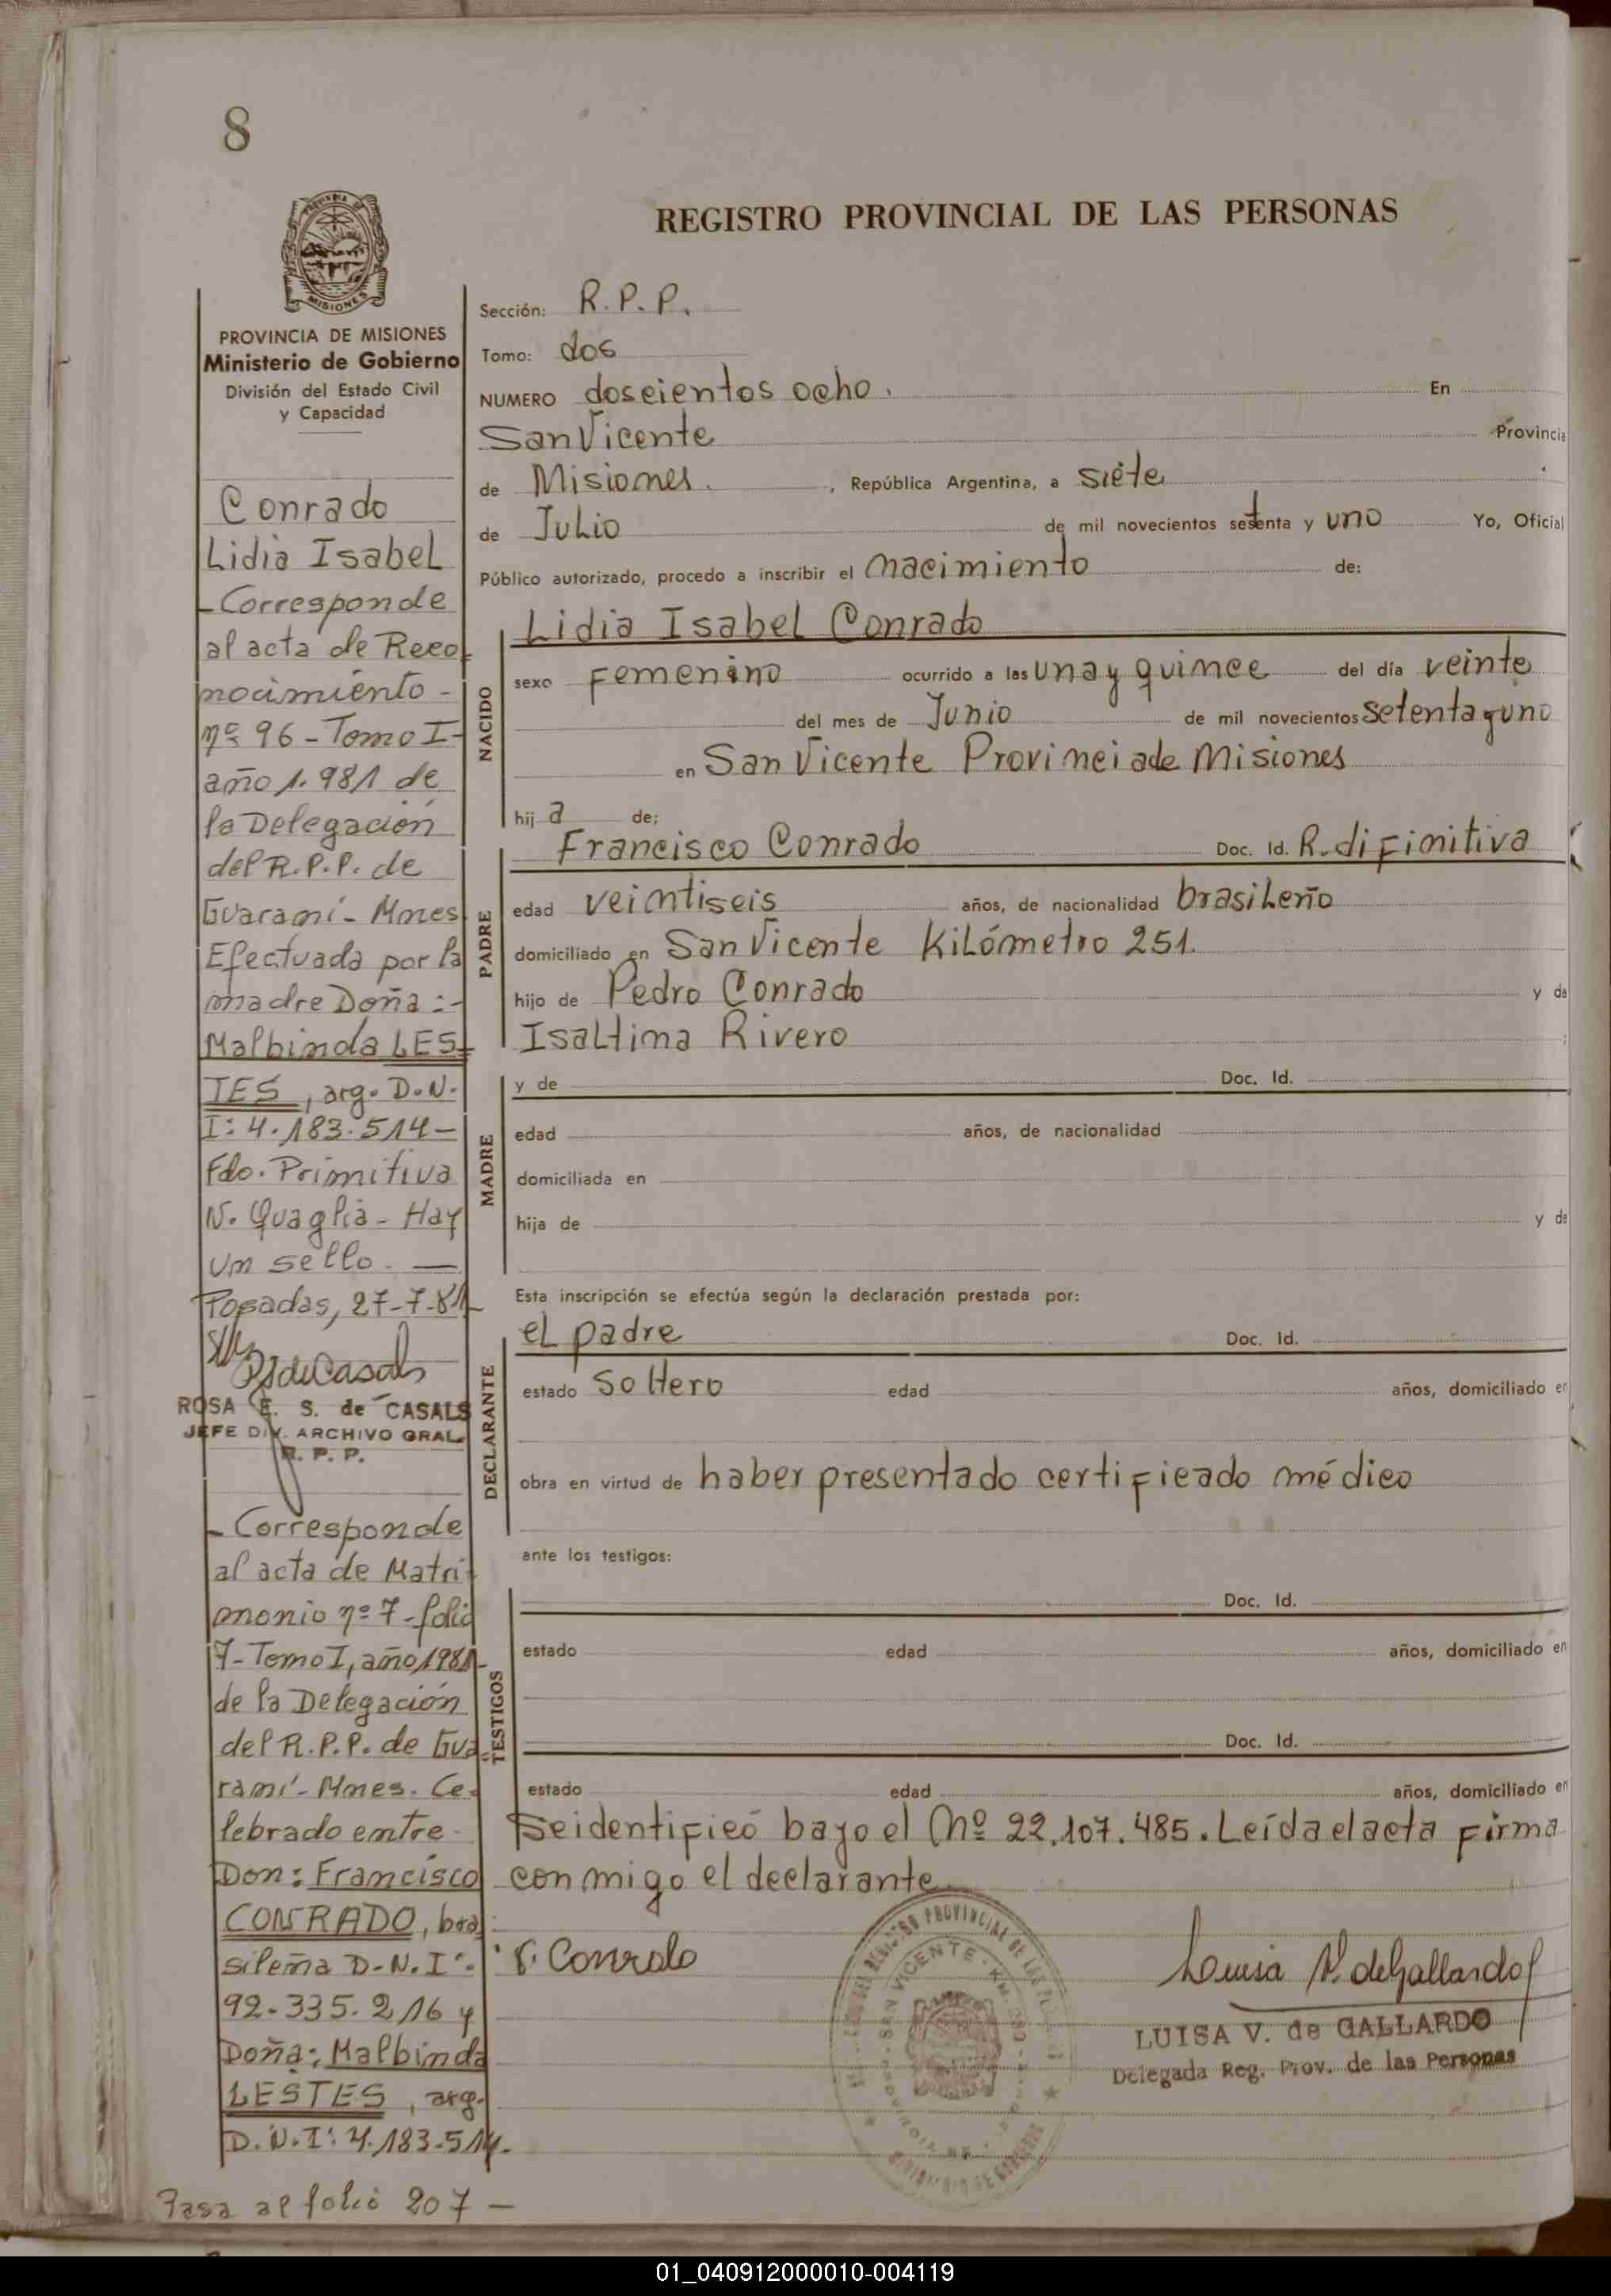 8
REGISTRO PROVINCIAL DE LAS PERSONAS
MISIONES
PROVINCIA DE MISIONES
Ministerio de Gobierno
División del Estado Civil
y Capacidad
Conrado
Lidia Isabel
- Corresponde
al acta de Reco-
nocimiento -
nº 96 - Tomo I -
año 1.981 de
la Delegación
del R.P.P. de
Guaraní - Mnes
Efectuada por la
madre Doña:-
Malbinda LES-
TES, arg. D.N.
I: 4.183.514 -
Fdo. Primitiva
N. Quaglia - Hay
un sello. —
Posadas, 27-7-81-
ROSA E. S. de CASALS
JEFE DIV. ARCHIVO GRAL.
R. P. P.
- Corresponde
al acta de Matri-
monio nº 7 - folio
7 - Tomo I, año 1981-
de la Delegación
del R.P.P. de Gua-
raní - Mnes. Ce-
lebrado entre
Don: Francisco
CONRADO, bra-
sileña D.N.I:
92.335.216 y
Doña: Malbinda
LESTES, arg.
D.N.I: 4.183.514.
Pasa al folio 207 —
Sección: R.P.P.
Tomo: dos
NUMERO doscientos ocho. En
San Vicente Provincia
de Misiones. , República Argentina, a siete
de Julio de mil novecientos setenta y uno Yo, Oficial
Público autorizado, procedo a inscribir el nacimiento de:
NACIDO
Lidia Isabel Conrado
sexo Femenino ocurrido a las una y quince del día veinte
del mes de Junio de mil novecientos setenta y uno
en San Vicente Provincia de Misiones
hij a de;
PADRE
Francisco Conrado Doc. Id. R. difinitiva
edad veintiseis años, de nacionalidad brasileño
domiciliado en San Vicente Kilómetro 251.
hijo de Pedro Conrado y de
Isaltima Rivero ;
MADRE
y de Doc. Id.
edad años, de nacionalidad
domiciliada en
hija de y de
Esta inscripción se efectúa según la declaración prestada por:
DECLARANTE
el padre Doc. Id.
estado soltero edad años, domiciliado en
obra en virtud de haber presentado certificado médico
ante los testigos:
TESTIGOS
Doc. Id.
estado edad años, domiciliado en
Doc. Id.
estado edad años, domiciliado en
Se identificó bajo el Nº 22.107.485. Leída el acta firma
con migo el declarante
F. Conrado
Luisa V. de Gallardo
LUISA V. de GALLARDO
Delegada Reg. Prov. de las Personas
01_040912000010-004119